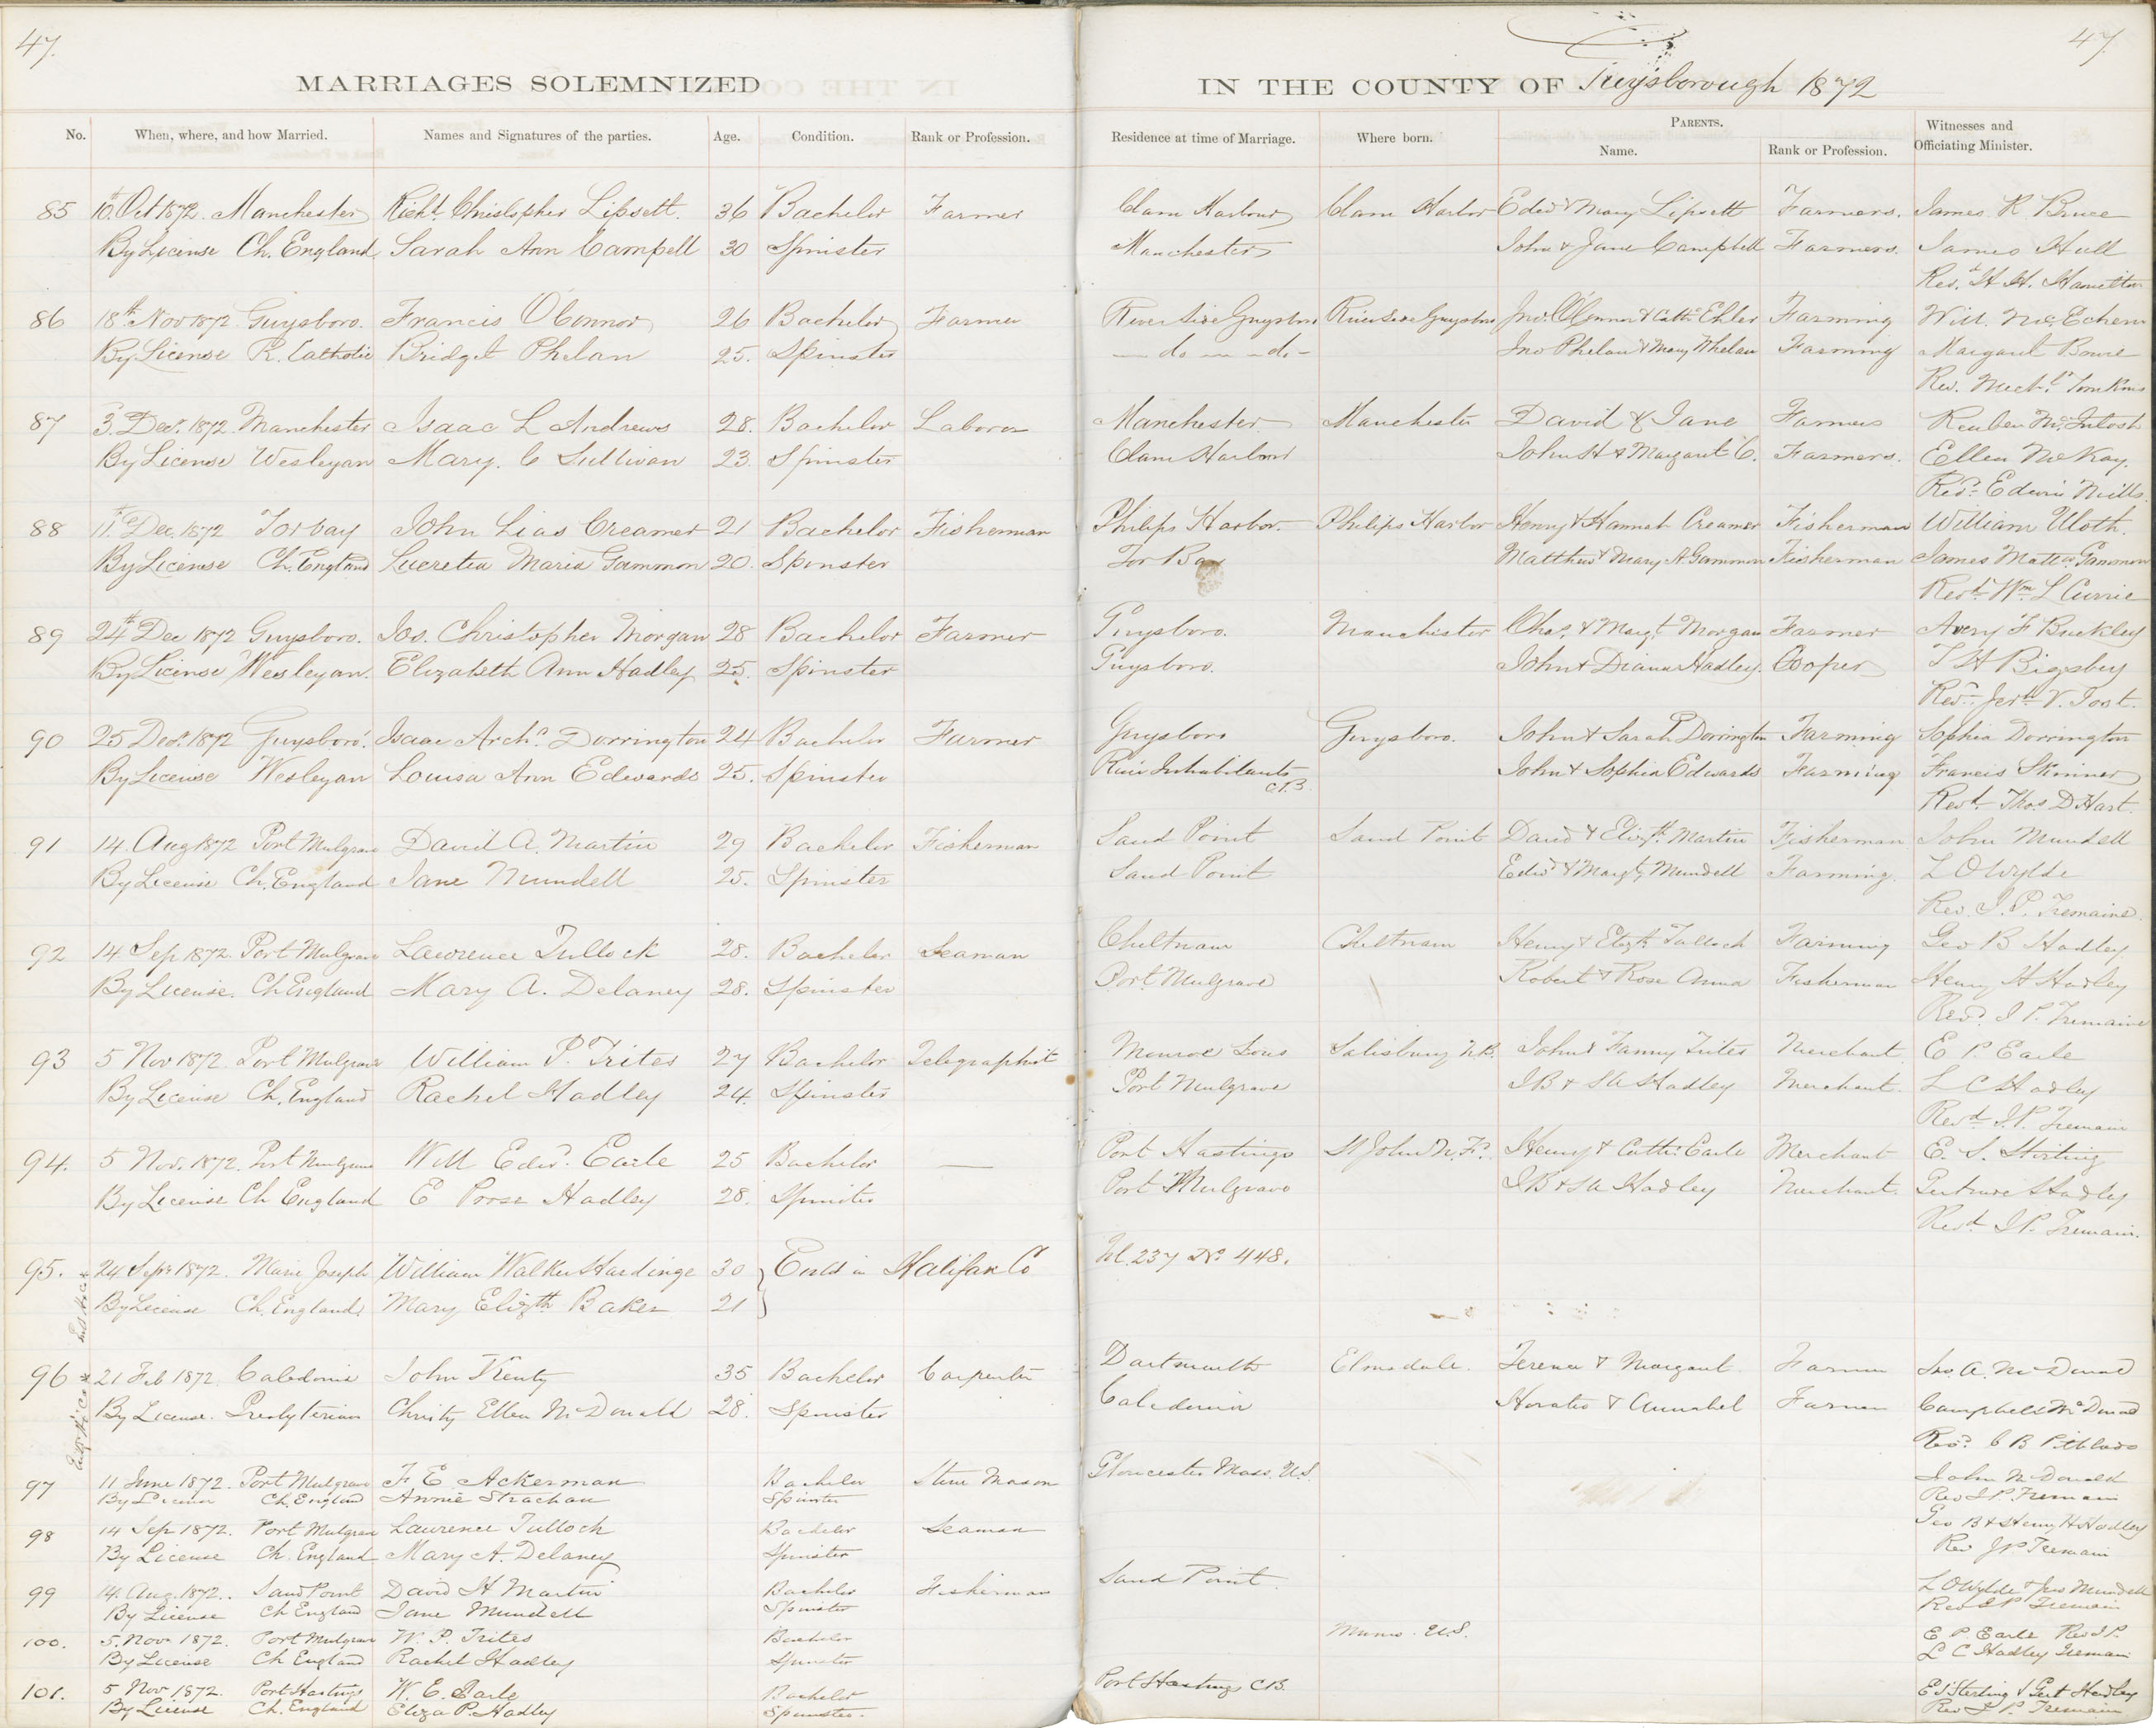 47.
47
MARRIAGES SOLEMNIZED
IN THE COUNTY OF Guysborough 1872
No. When, where, and how Married. Names and Signatures of the parties. Age. Condition. Rank or Profession. Residence at time of Marriage. Where born. PARENTS. Name. Rank or Profession. Witnesses and Officiating Minister.
85 10th Oct 1872. Manchester Richd. Christopher Lipsett. 36 Bachelor Farmer Clam Harbour Clam Harbor Edwd & Mary Lipsett Farmers. James R Bruce
By License Ch. England Sarah Ann Campell 30 Spinster Manchester John & Jane Campbell Farmers. James Hull
Revd. H. H. Hamilton
86 18th Nov 1872 Guysboro. Francis O'Connor 26 Bachelor Farmer River Side Guysboro River Side Guysboro Jno. O'Connor & Cathe Ehler Farming Will. McEchern
By License R. Catholic Bridget Phelan 25. Spinster — do — — do — Jno Phelan & Mary Whelan Farming Margaret Bowie
Rev. Michl. Tomkins
87 3. Decr. 1872. Manchester Isaac L Andrews 28. Bachelor Laborer Manchester Manchester David & Jane Farmers Reuben McIntosh
By License Wesleyan Mary. C Sullivan 23. Spinster Clam Harbor John H & Margaret C. Farmers. Ellen McKay.
Revd. Edwin Mills.
88 11th Dec. 1872 Torbay John Lias Creamer 21 Bachelor Fisherman Philips Harbor. Philips Harbor Henry & Hannah Creamer Fisherman William Uloth.
By License Ch. England Lucretia Maria Gammon 20. Spinster Tor Bay Matthew & Mary A. Gammon Fisherman James Gammon
Revd. Wm. L Currie
89 24th Dec 1872 Guysboro. Jos. Christopher Morgan 28 Bachelor Farmer Guysboro. Manchester Chas. & Margt. Morgan Farmer Avery F Buckley
By License Wesleyan. Elizabeth Ann Hadley 25. Spinster Guysboro. John & Diana Hadley. Cooper T H Bigsby
Revd. Jerh. V. Jost.
90 25 Decr. 1872 Guysboro'. Isaac Archd. Dorrington 24 Bachelor Farmer Guysboro Guysboro. John & Sarah Dorrington Farming Sophia Dorrington
By License Wesleyan Louisa Ann Edwards 25. Spinster River Inhabitants C.B. John & Sophia Edwards Farming Francis Skinner
Revd. Thos. D. Hart.
91 14. Aug 1872 Port Mulgrave David A. Martin 29 Bachelor Fisherman Sand Point Sand Point David & Elizth. Martin Fisherman John Mundell
By License Ch. England Jane Mundell 25. Spinster Sand Point Edwd & Margt. Mundell Farming. L O Wylde
Rev. J. P. Tremaine.
92 14 Sep 1872. Port Mulgrave Lawrence Tullock 28. Bachelor Seaman Cheltnam Cheltnam Henry & Elizth Tulloch Farming Geo B Hadley
By License. Ch England Mary A. Delaney 28. Spinster Port Mulgrave Robert & Rose Anna Fisherman Henry H Hadley
Revd. J P. Tremaine
93 5 Nov 1872. Port Mulgrave William P. Trites 27 Bachelor Telegraphist Monroe Salisbury N.B. John & Fanny Trites Merchant E P. Earle
By License Ch. England Rachel Hadley 24. Spinster Port Mulgrave J B & S A Hadley Merchant. L C Hadley
Revd. J. P. Tremain
94. 5 Nov. 1872. Port Mulgrave Will Edwd. Earle 25 Bachelor — Port Hastings St John N. F. Henry & Cathe. Earle Merchant E. S. Stirling
By License Ch England E Hadley 28. Spinster Port Mulgrave J B & S A Hadley Merchant. Gertrude Hadley
Revd. J P. Tremain.
95. 24 Sepr 1872. Marie Joseph William Walker Hardinge 30 } Entd in Halifax Co Fol. 237 No. 448.
By License Ch. England. Mary Elizth Baker 21
96 21 Feb 1872. Caledonia John Kenty 35 Bachelor Carpenter Dartmouth Elmsdale. Terence & Margaret. Farmer Jno. A. McDonald
By License. Presbyterian Christy Ellen McDonald 28. Spinster Caledonia Horatio & Annabel Farmer Campbell McDonald
Revd. C B Pitblado
97 11 June 1872. Port Mulgrave F E Ackerman Bachelor Stone Mason Gloucester Mass. U.S. John McDonald
By License Ch. England Annie Strachan Spinster Rev J P. Tremain
98 14 Sep 1872. Port Mulgrave Lawrence Tulloch Bachelor Seaman Geo B & Henry H Hadley
By License Ch. England Mary A. Delaney Spinster Rev J P. Tremain
99 14. Aug. 1872.. Sand Point David H Martin Bachelor Fisherman Sand Point L O Wylde & Jno Mundell
By License Ch England Jane Mundell Spinster Rev J P Tremain
100. 5. Nov. 1872. Port Mulgrave W. P. Trites Bachelor U.S. E P. Earle Rev J P.
By License Ch England Rachel Hadley Spinster L C Hadley Tremain
101. 5 Nov 1872. Port Hastings W. E. Earle Bachelor Port Hastings C.B. E S Sterling & Gert Hadley
By License Ch. England Eliza P. Hadley Spinster. Rev J P. Tremain